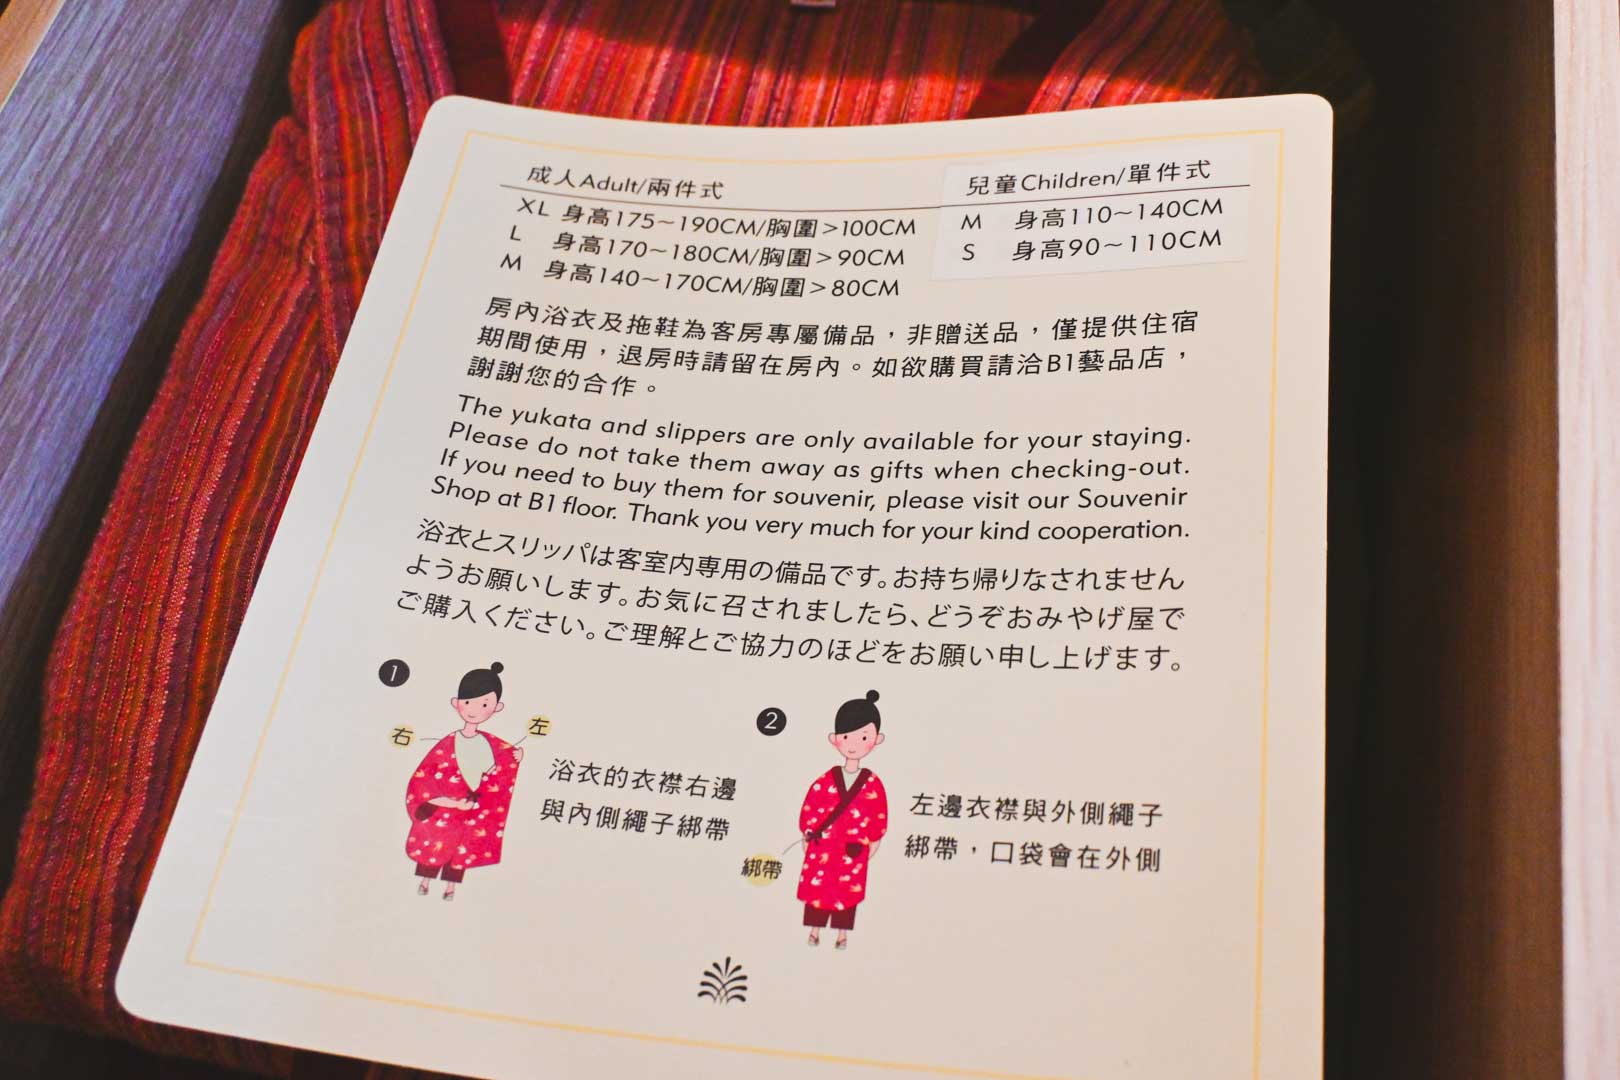 成人Adult/兩件式
XL 身高175~190CM/胸圍>100CM
L 身高170~180CM/胸圍>90CM
M 身高140~170CM/胸圍>80CM
兒童Children/單件式
M 身高110~140CM
S 身高90~110CM
房內浴衣及拖鞋為客房專屬備品，非贈送品，僅提供住宿
期間使用，退房時請留在房內。如欲購買請洽B1藝品店，
謝謝您的合作。
The yukata and slippers are only available for your staying.
Please do not take them away as gifts when checking-out.
If you need to buy them for souvenir, please visit our Souvenir
Shop at B1 floor. Thank you very much for your kind cooperation.
浴衣とスリッパは客室内専用の備品です。お持ち帰りなされません
ようお願いします。お気に召されましたら、どうぞおみやげ屋で
ご購入ください。ご理解とご協力のほどをお願い申し上げます。
1
右
左
浴衣的衣襟右邊
與內側繩子綁帶
2
綁帶
左邊衣襟與外側繩子
綁帶，口袋會在外側